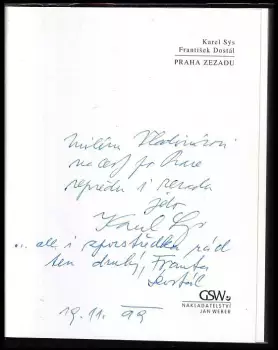 Karel Sýs
František Dostál
PRAHA ZEZADU
milému Vladimírovi
na cesty po Praze
zepředu i zezadu
jde
Karel Sýs
... ale i zprostředka rád
ten druhý, Franta
Dostál
19. 11. 99
GSW
NAKLADATELSTVÍ
JAN WEBER